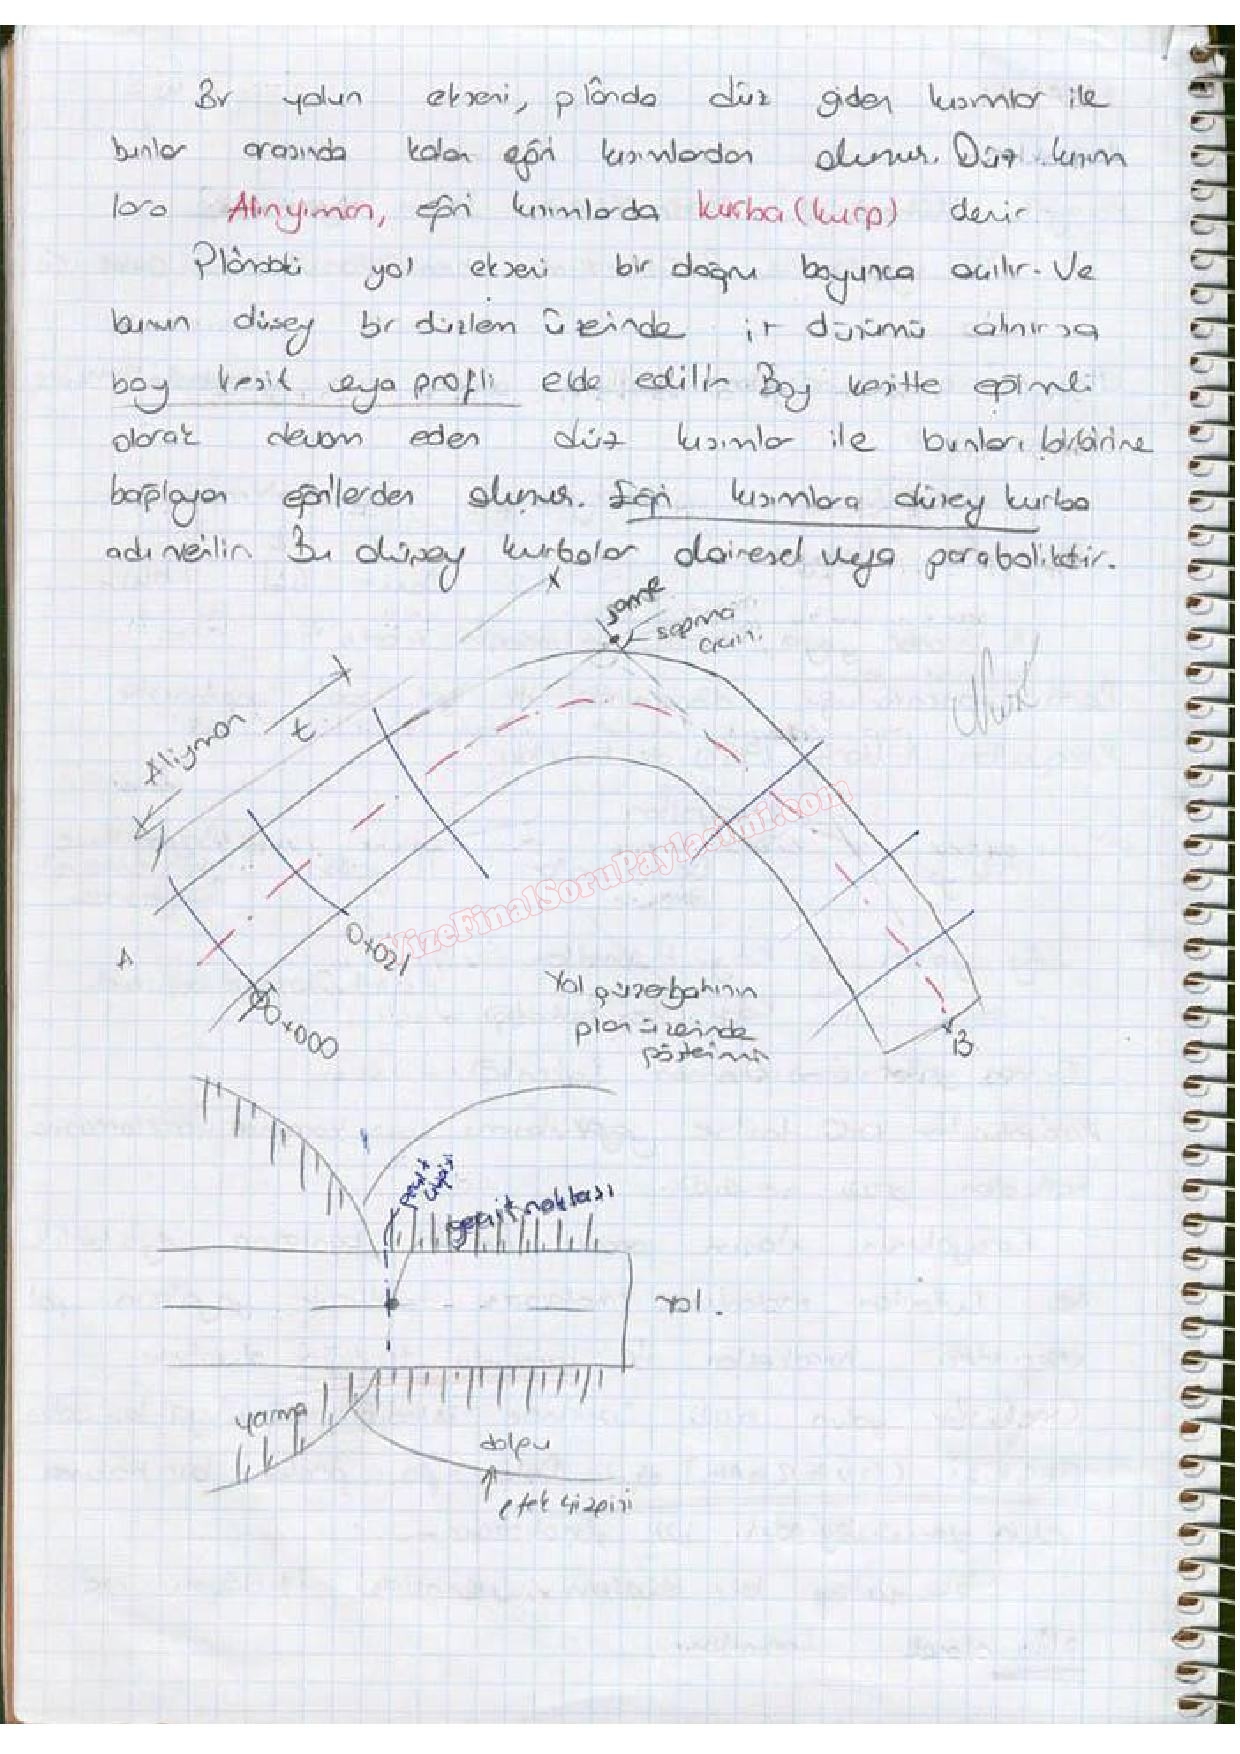 Bir yolun ekseni, plânda düz giden kısımlar ile
bunlar arasında kalan eğri kısımlardan oluşur. Düz kısım
lara Alinyiman, eğri kısımlarda kurba (kurp) denir
Plândaki yol ekseni bir doğru boyunca açılır. Ve
bunun düşey bir düzlem üzerinde iz düşümü alınırsa
boy kesit veya profili elde edilir. Boy kesitte eğimli
olarak devam eden düz kısımlar ile bunları birbirine
bağlayan eğrilerden oluşur. Eğri kısımlara düşey kurba
adı verilir. Bu düşey kurbalar dairesel veya paraboliktir.
some
sapma
açısı.
Aliyman
t
A
0+021
00+000
Yol güzergahının
plan üzerinde
gösterimi
B
geçit
çizgisi
geçit noktası
Yol.
yarma
dolgu
etek çizgisi
VizeFinalSoruPaylasimi.com